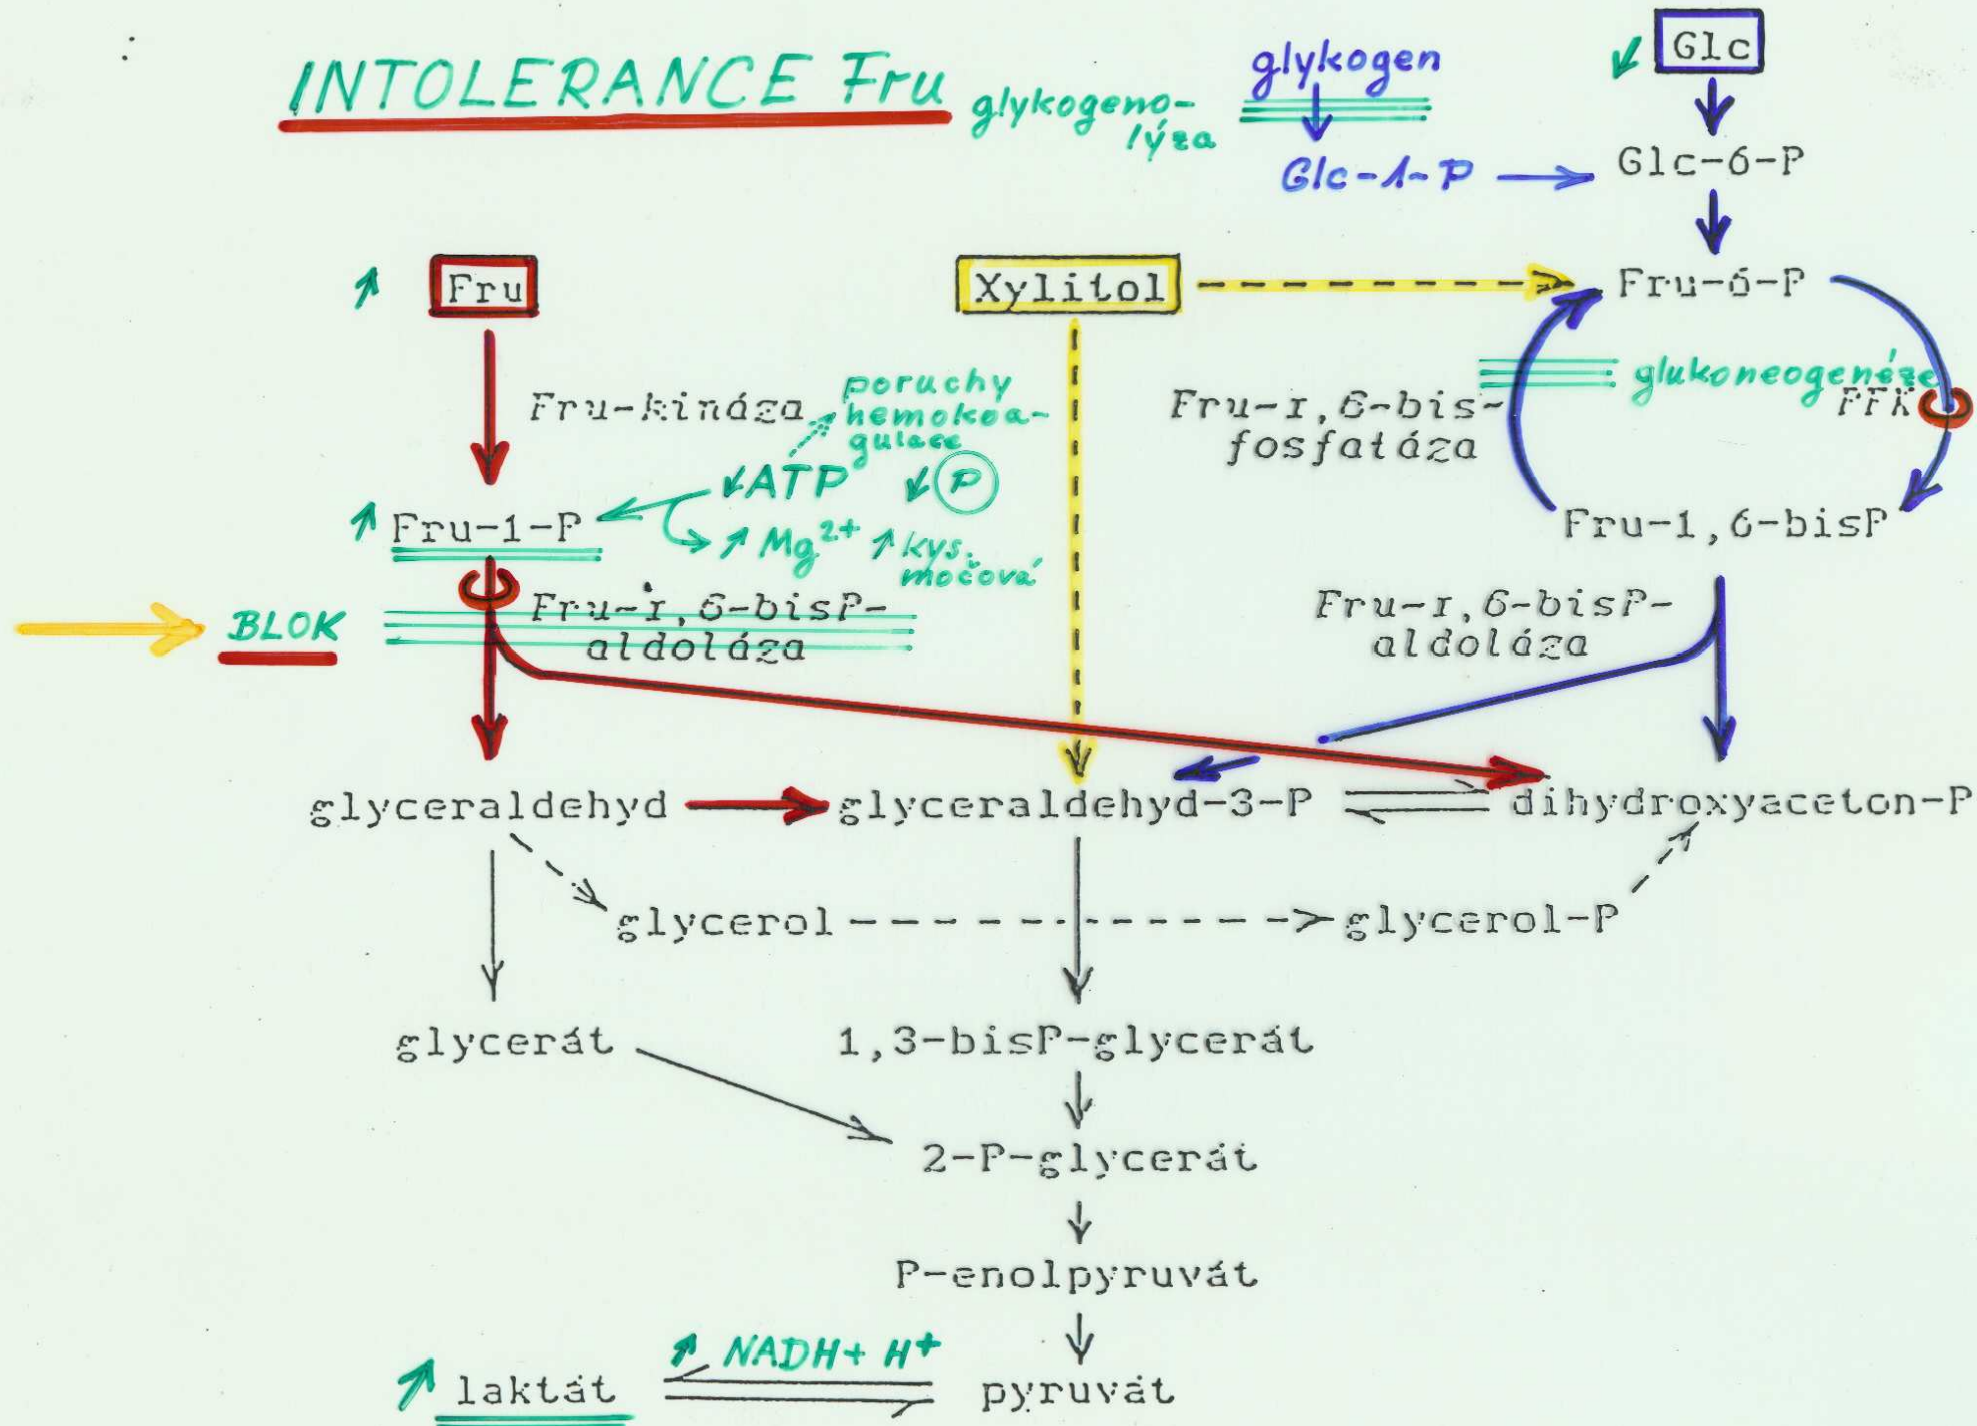 INTOLERANCE Fru
glykogeno-
lýza
glykogen
Glc
Glc-1-P
Glc-6-P
Fru
Xylitol
Fru-6-P
Fru-kináza
poruchy
hemokoa-
gulace
Fru-1,6-bis-
fosfatáza
glukoneogenéze
PFK
↓ATP ↓P
↑ Fru-1-P
↑ Mg2+ ↑ kys.
močová
Fru-1,6-bisP
BLOK
Fru-1,6-bisP-
aldoláza
Fru-1,6-bisP-
aldoláza
glyceraldehyd
glyceraldehyd-3-P
dihydroxyaceton-P
glycerol
glycerol-P
glycerát
1,3-bisP-glycerát
2-P-glycerát
P-enolpyruvát
↑ NADH+ H+
↑ laktát
pyruvát